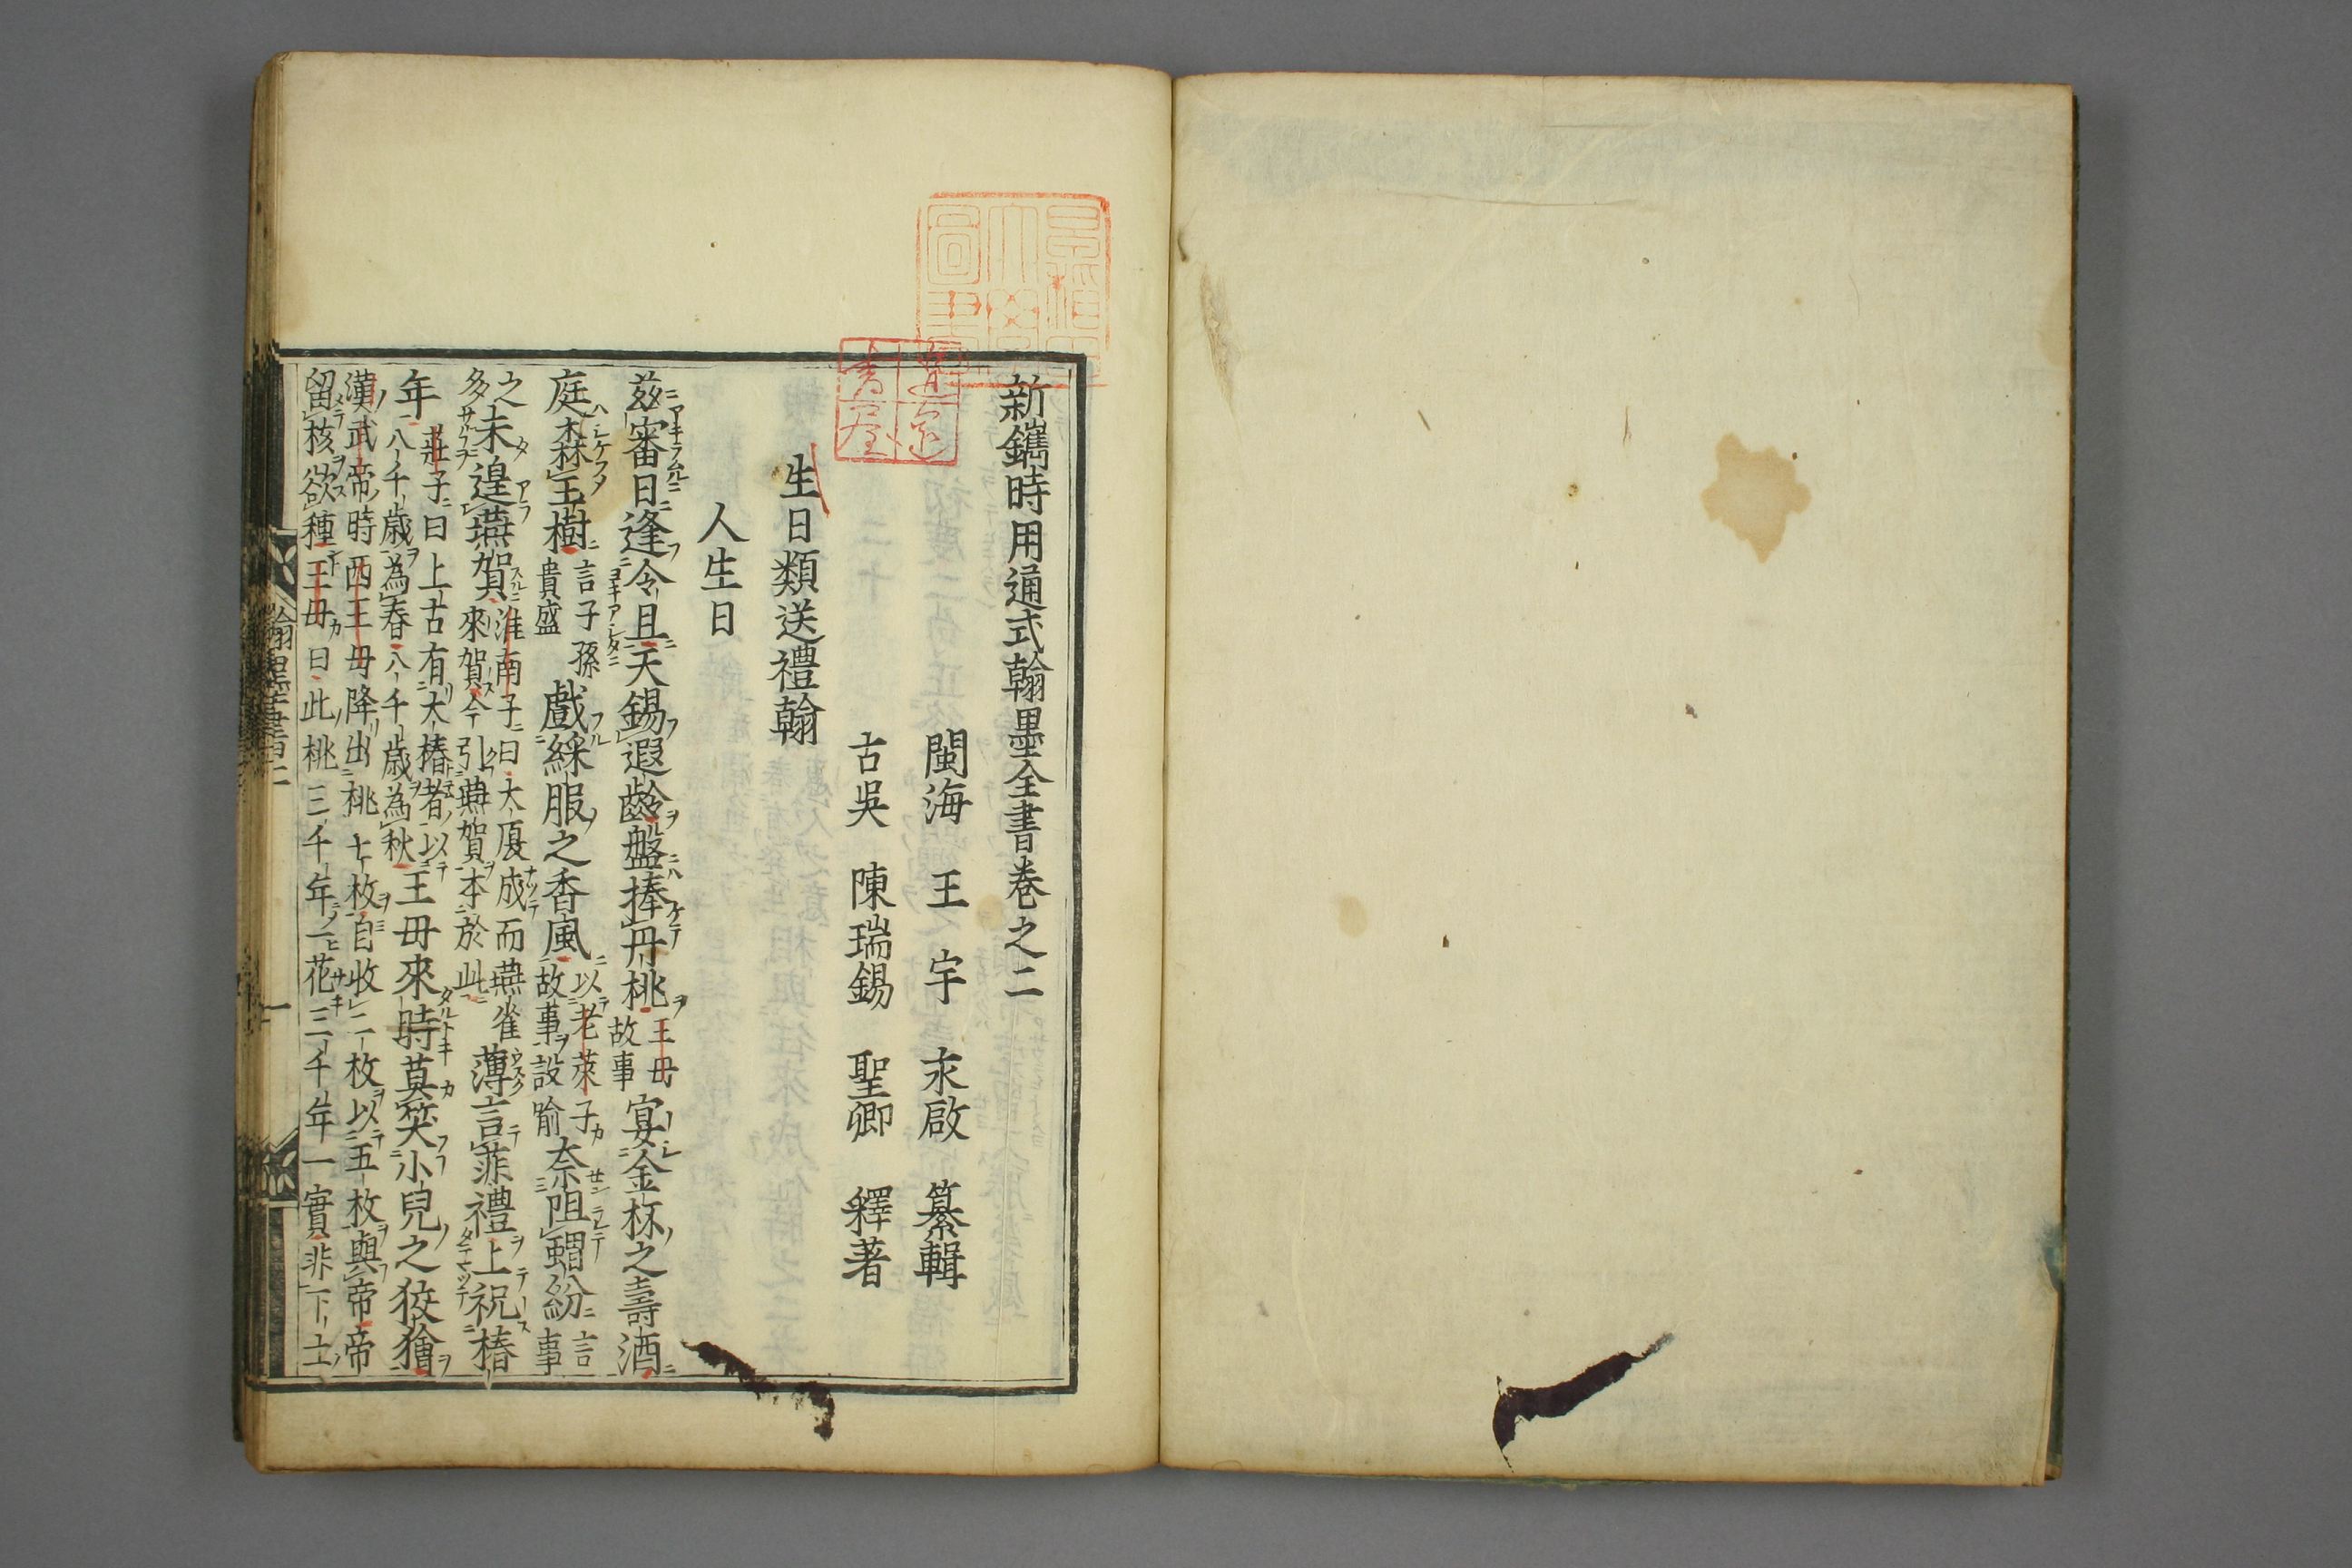 新鐫時用通式翰墨全書卷之二
閩海 王 宇 永啟 纂輯
古吳 陳瑞錫 聖卿 釋著
生日類送禮翰
人生日
茲審日逢令旦天錫遐齡盤捧丹桃王母故事宴金杯之壽酒
庭森玉樹言子孫貴盛戲綵服之香風以老萊子故事設喻奈阻蝟紛言事
之多未遑燕賀淮南子曰大厦成而燕雀來賀今引燕賀本於此薄言菲禮上祝椿
年莊子曰上古有大椿者以八千歲為春八千歲為秋王母來時莫笑小兒之狡獪
漢武帝時西王母降出桃七枚自收二枚以五枚與帝帝
留核欲種王母曰此桃三千年一花三千年一實非下土
翰墨全書卷二
一